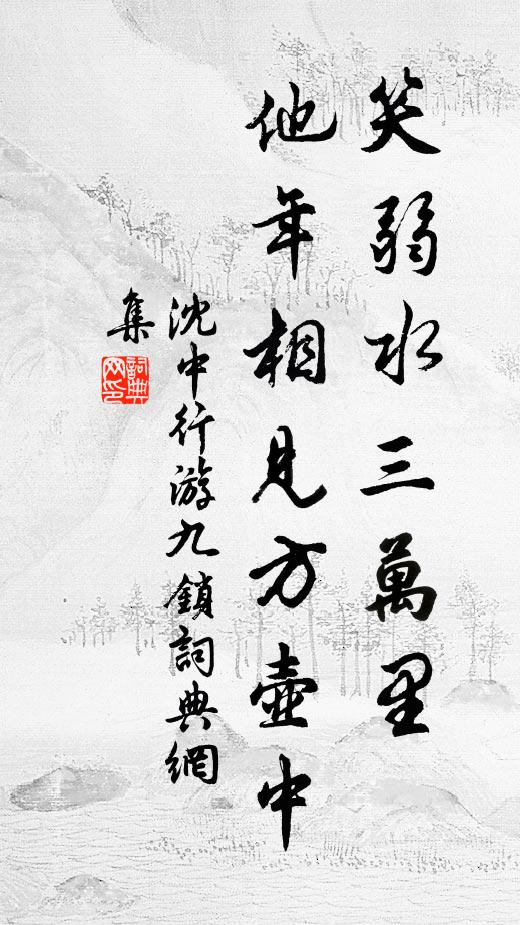 笑弱水三萬里
他年相見方壺中
沈中行游九鎖詞典網
集
詞典
网印